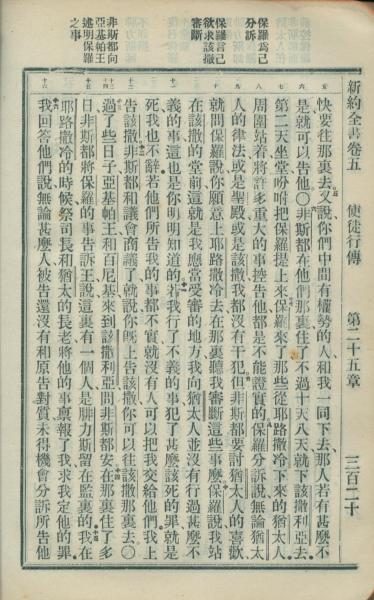 新約全書卷五　使徒行傳　第二十五章　三百二十
保羅爲己分訴
保羅言己欲求該撒審斷
非斯都向亞基帕王述明保羅之事
快要往那裏去又說你們中間有權勢的人和我一同下去那人若有甚麽不
是就可以告他〇非斯都在他們那裏住了不過十天八天就下該撒利亞去
第二天坐堂吩咐把保羅提上來保羅來了那些從耶路撒冷下來的猶太人
周圍站着將許多重大的事控告他都是不能證實的保羅分訴說無論猶太
人的律法或是聖殿或是該撒我都沒有干犯但非斯都要討猶太人的喜歡
就問保羅說你願意上耶路撒冷去在那裏聽我審斷這些事麽保羅說我站
在該撒的堂前這就是我應當受審的地方我向猶太人並沒有行過甚麽不
義的事這也是你明明知道的若我行了不義的事犯了甚麽該死的罪就是
死我也不辭若他們所告我的事都不實就沒有人可以把我交給他們我上
告該撒非斯都和議會商議了就說你旣上告該撒你可以往該撒那裏去〇
過了些日子亞基帕王和百尼基來到該撒利亞問非斯都安在那裏住了多
日非斯都將保羅的事告訴王說這裏有一個人是腓力斯留在監裏的我在
耶路撒冷的時候祭司長和猶太的長老將他的事稟報了我求我定他的罪
我回答他們說無論甚麽人被告還沒有和原告對質未得機會分訴所告他